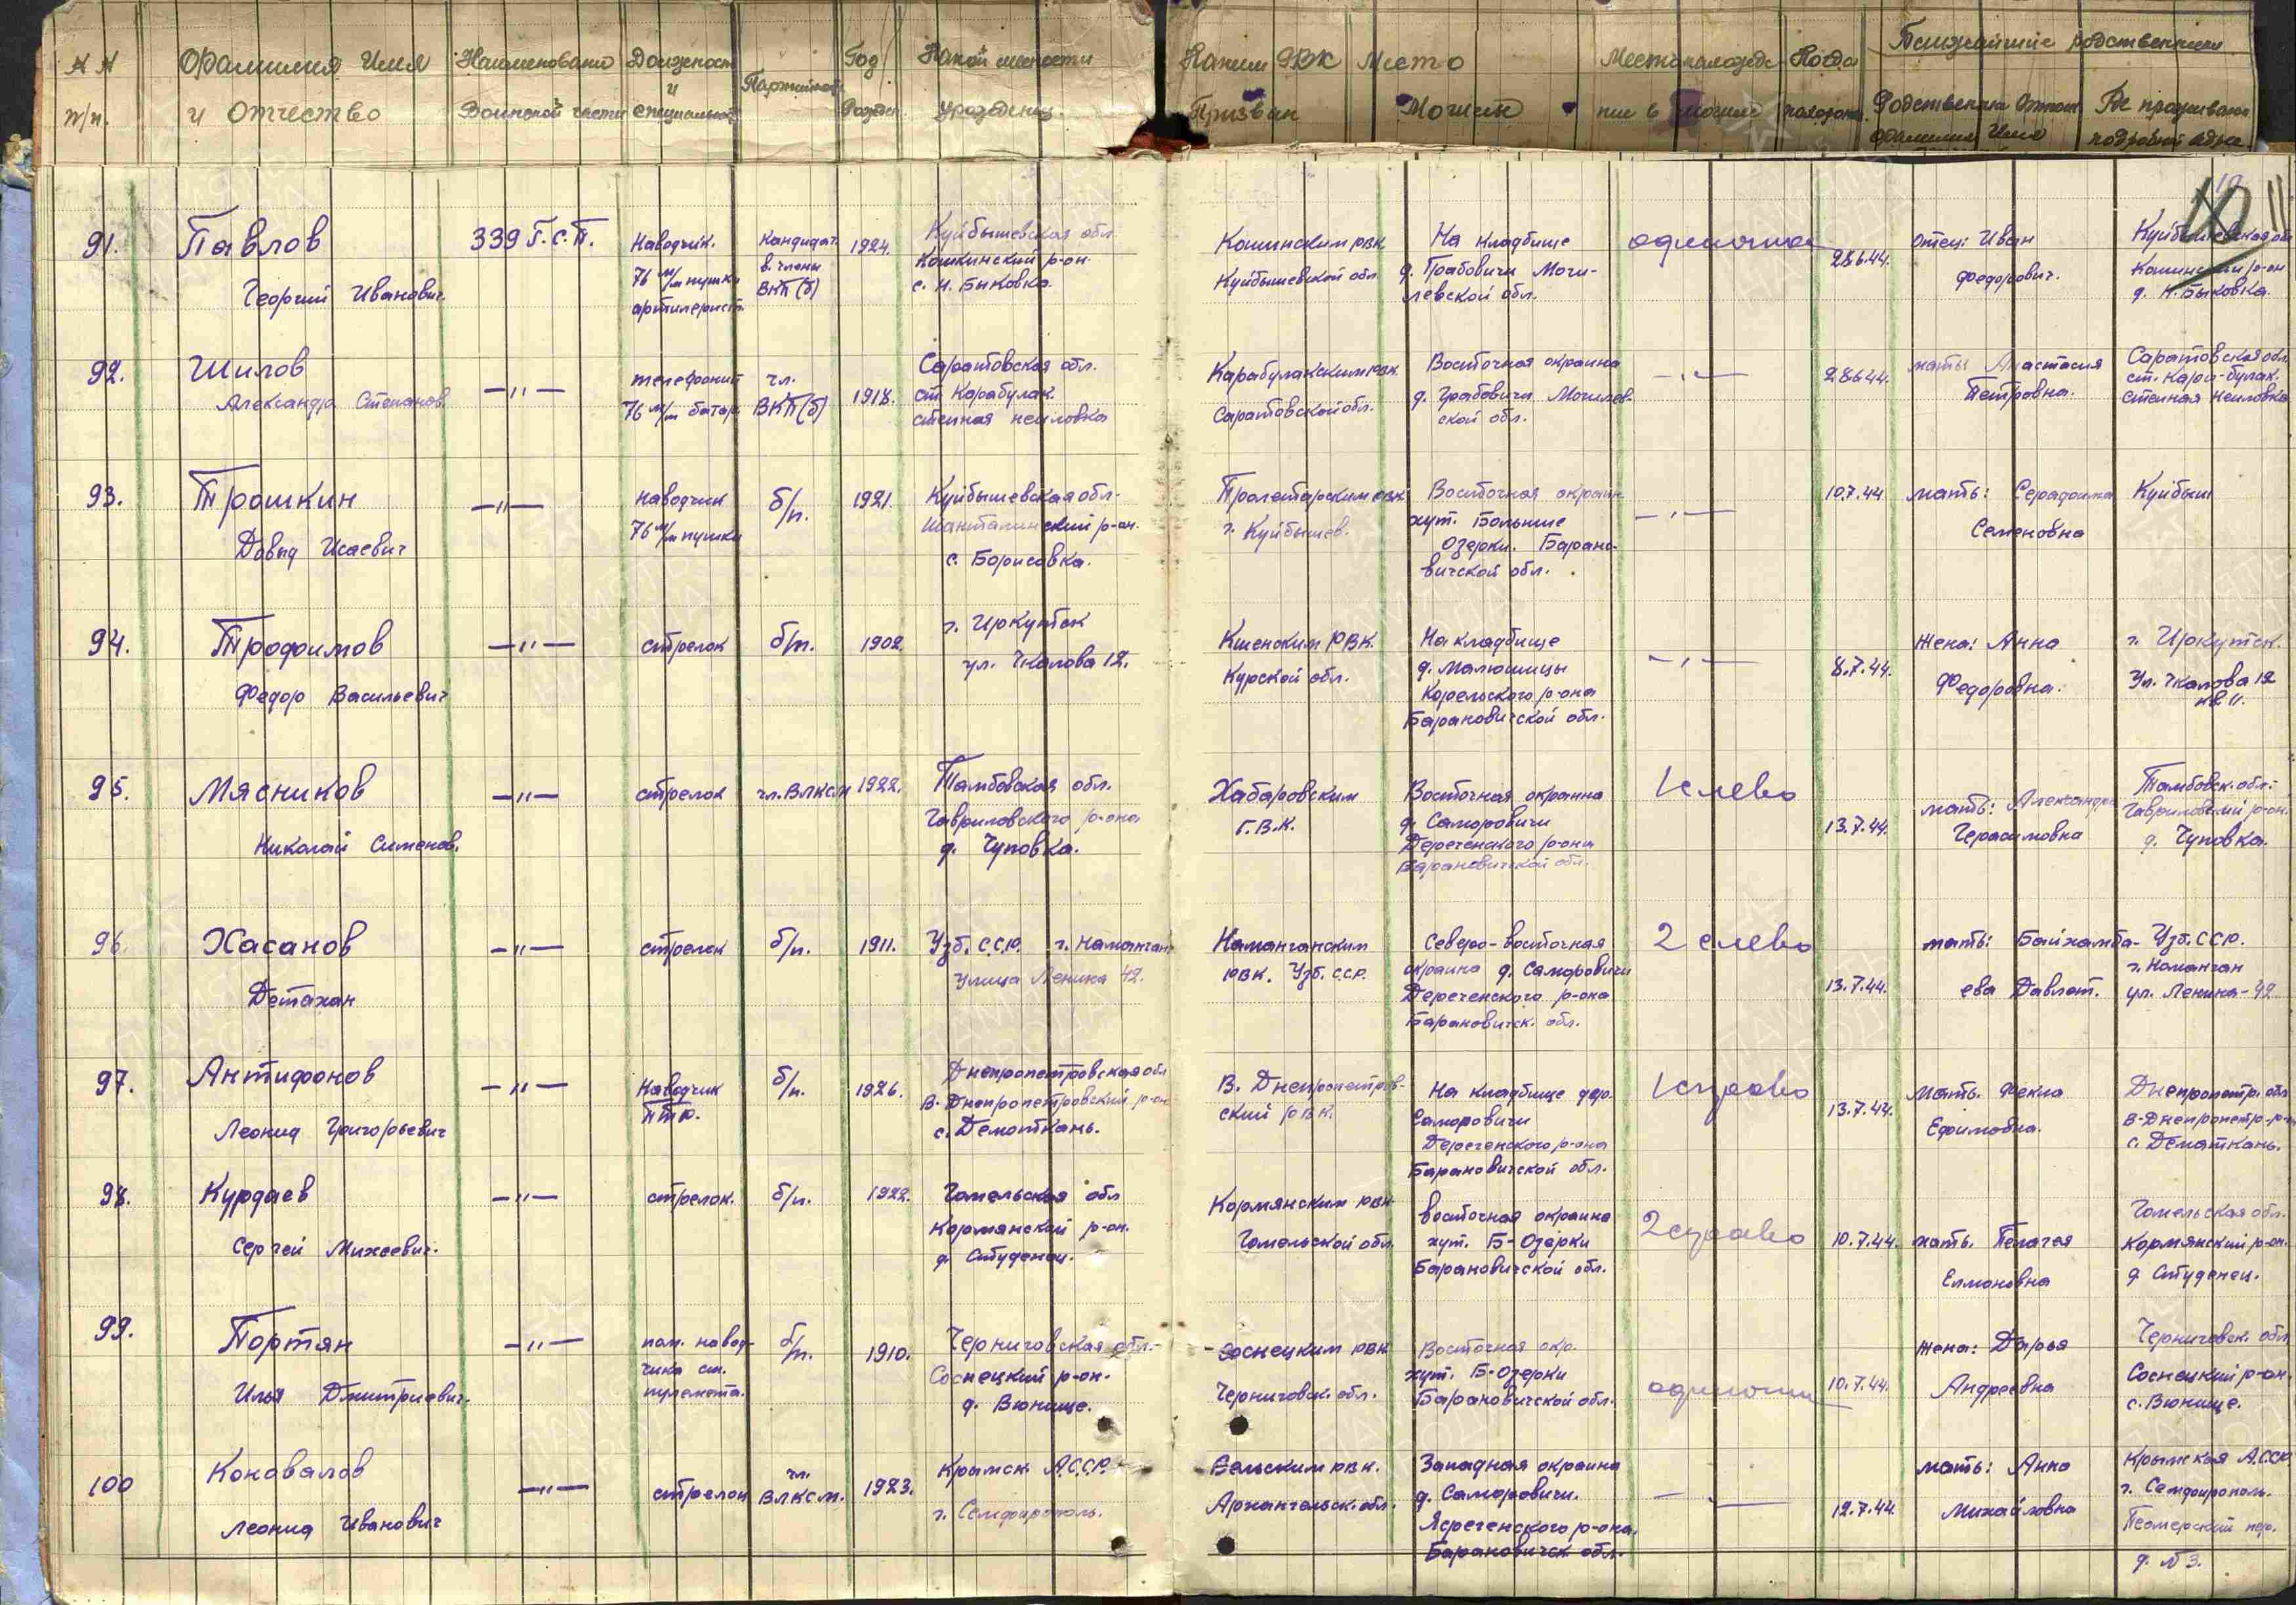 № №
п/п.
Фамилия Имя
и Отчество
Наименование
Воинской части
Должность
и
специальность
Партийность
Год
рожден
Какой местности
урожденец
Каким РВК
Призван
Место
Могилы
Местонахожде-
ние в могиле
Когда
похоронен
Ближайшие родственники
Родственник Отчест
фамилия Имя
Где проживают
подробный адрес
10
11
91.
Павлов
Георгий Иванович.
339 Г.С.П.
Наводчик.
76 м/м пушки
артилерист.
Кандидат.
в. члены
ВКП(б)
1924.
Куйбышевская обл
Кошкинский р-он.
с. Н. Быковка.
Кошинским рвк
Куйбышевской обл
На кладбище
д. Грабовичи Моги-
левской обл.
одиночная
28.6.44.
отец: Иван
Федорович.
Куйбышевская об
Кошинский р-он
д. Н. Быковка.
92.
Шилов
Александр Степанов.
—"—
телефонист
76 м/м батар.
чл.
ВКП(б)
1918.
Саратовская обл.
ст. Карабулак.
степная неиловка
Карабулакским рвк.
Саратовской обл.
Восточная окраина
д. Грабовичи Могилев-
ской обл.
—"—
28644.
мать Анастасия
Петровна.
Саратовская обл
ст. Кара-булак.
степная неиловка
93.
Трошкин
Давыд Исаевич
—"—
наводчик
76 м/м пушки
б/п.
1921.
Куйбышевская обл-
Шанталинский р-он.
с. Борисовка.
Пролетарским рвк
г. Куйбышев.
Восточная окраин
хут. Большие
Озерки. Барано-
вичской обл.
—"—
10.7.44
мать: Серафима
Семеновна
Куйбыш
94.
Трофимов
Федор Васильевич
—"—
стрелок
б/п.
1902.
г. Иркутск
ул. Чкалова 12.
Кшенским РВК.
Курской обл.
На кладбище
д. Малюшицы
Корельского р-она
Барановичской обл.
—"—
8.7.44.
Жена: Анна
Федоровна.
г. Иркутск.
Ул. Чкалова 12
кв. 11.
95.
Мясников
Николай Сименов.
—"—
стрелок
чл. ВЛКСМ
1922.
Тамбовская обл.
Гавриловского р-она
д. Чуповка.
Хабаровским
Г.В.К.
Восточная окраина
д. Саморовичи
Дереченского р-она
Барановичской обл.
1 слево
13.7.44.
мать: Александра
Герасимовна
Тамбовск. обл.
Гавриловский р-он.
д. Чуповка.
96.
Хасанов
Детахан
—"—
стрелок
б/п.
1911.
Узб. С.С.Р. г. Наманган
улица Ленина 42.
Наманганским
РВК. Узб. ССР.
Северо-восточная
окраина д. Саморовичи
Деречинского р-она
Барановичск. обл.
2 слево
13.7.44.
мать: Байхамба-
ева Давлат.
Узб. ССР.
г. Наманган
ул. Ленина - 42
97.
Антифонов
Леонид Григорьевич
—"—
Наводчик
ПТР.
б/п.
1926.
Днепропетровская обл
В-Днепропетровский р-он
с. Демоткань.
В. Днепропетров-
ский РВК.
На кладбище дер.
Саморовичи
Деречинского р-она
Барановичской обл.
1 справо
13.7.44.
Мать. Фекла
Ефимовна.
Днепропетр. обл
В-Днепропетр. р-он
с. Демоткань.
98.
Курдаев
Сергей Михеевич.
—"—
стрелок.
б/п.
1922.
Гомельская обл
Кормянский р-он.
д. Студенец.
Кормянским РВК
Гомельской обл.
Восточная окраина
хут. Б-Озерки
Барановичской обл.
2 справо
10.7.44.
мать. Пелагея
Елмоновна
Гомельская обл.
Кормянский р-он.
д. Студенец.
99.
Портян
Илья Дмитриевич.
—"—
пом. навод-
чика ст.
пулемета.
б/п.
1910.
Черниговская обл.-
Соснецкий р-он.
д. Вюнище.
Соснецким РВК
Черниговск. обл.
Восточная окр.
хут. Б-Озерки
Барановичской обл.
одиночная
10.7.44.
жена: Дарья
Андреевна
Черниговск. обл
Соснецкий р-он.
с. Вюнище.
100
Коновалов
Леонид Иванович
—"—
стрелок
чл.
ВЛКСМ.
1923.
Крымск. А.С.С.Р.
г. Семфирополь.
Вельским РВК.
Архангельск. обл.
Западная окраина
д. Саморовичи.
Яеречинского р-она.
Барановичск обл.
—"—
12.7.44.
мать: Анна
Михайловна
Крымская А.ССР
г. Семфирополь.
пер.
д. № 3.